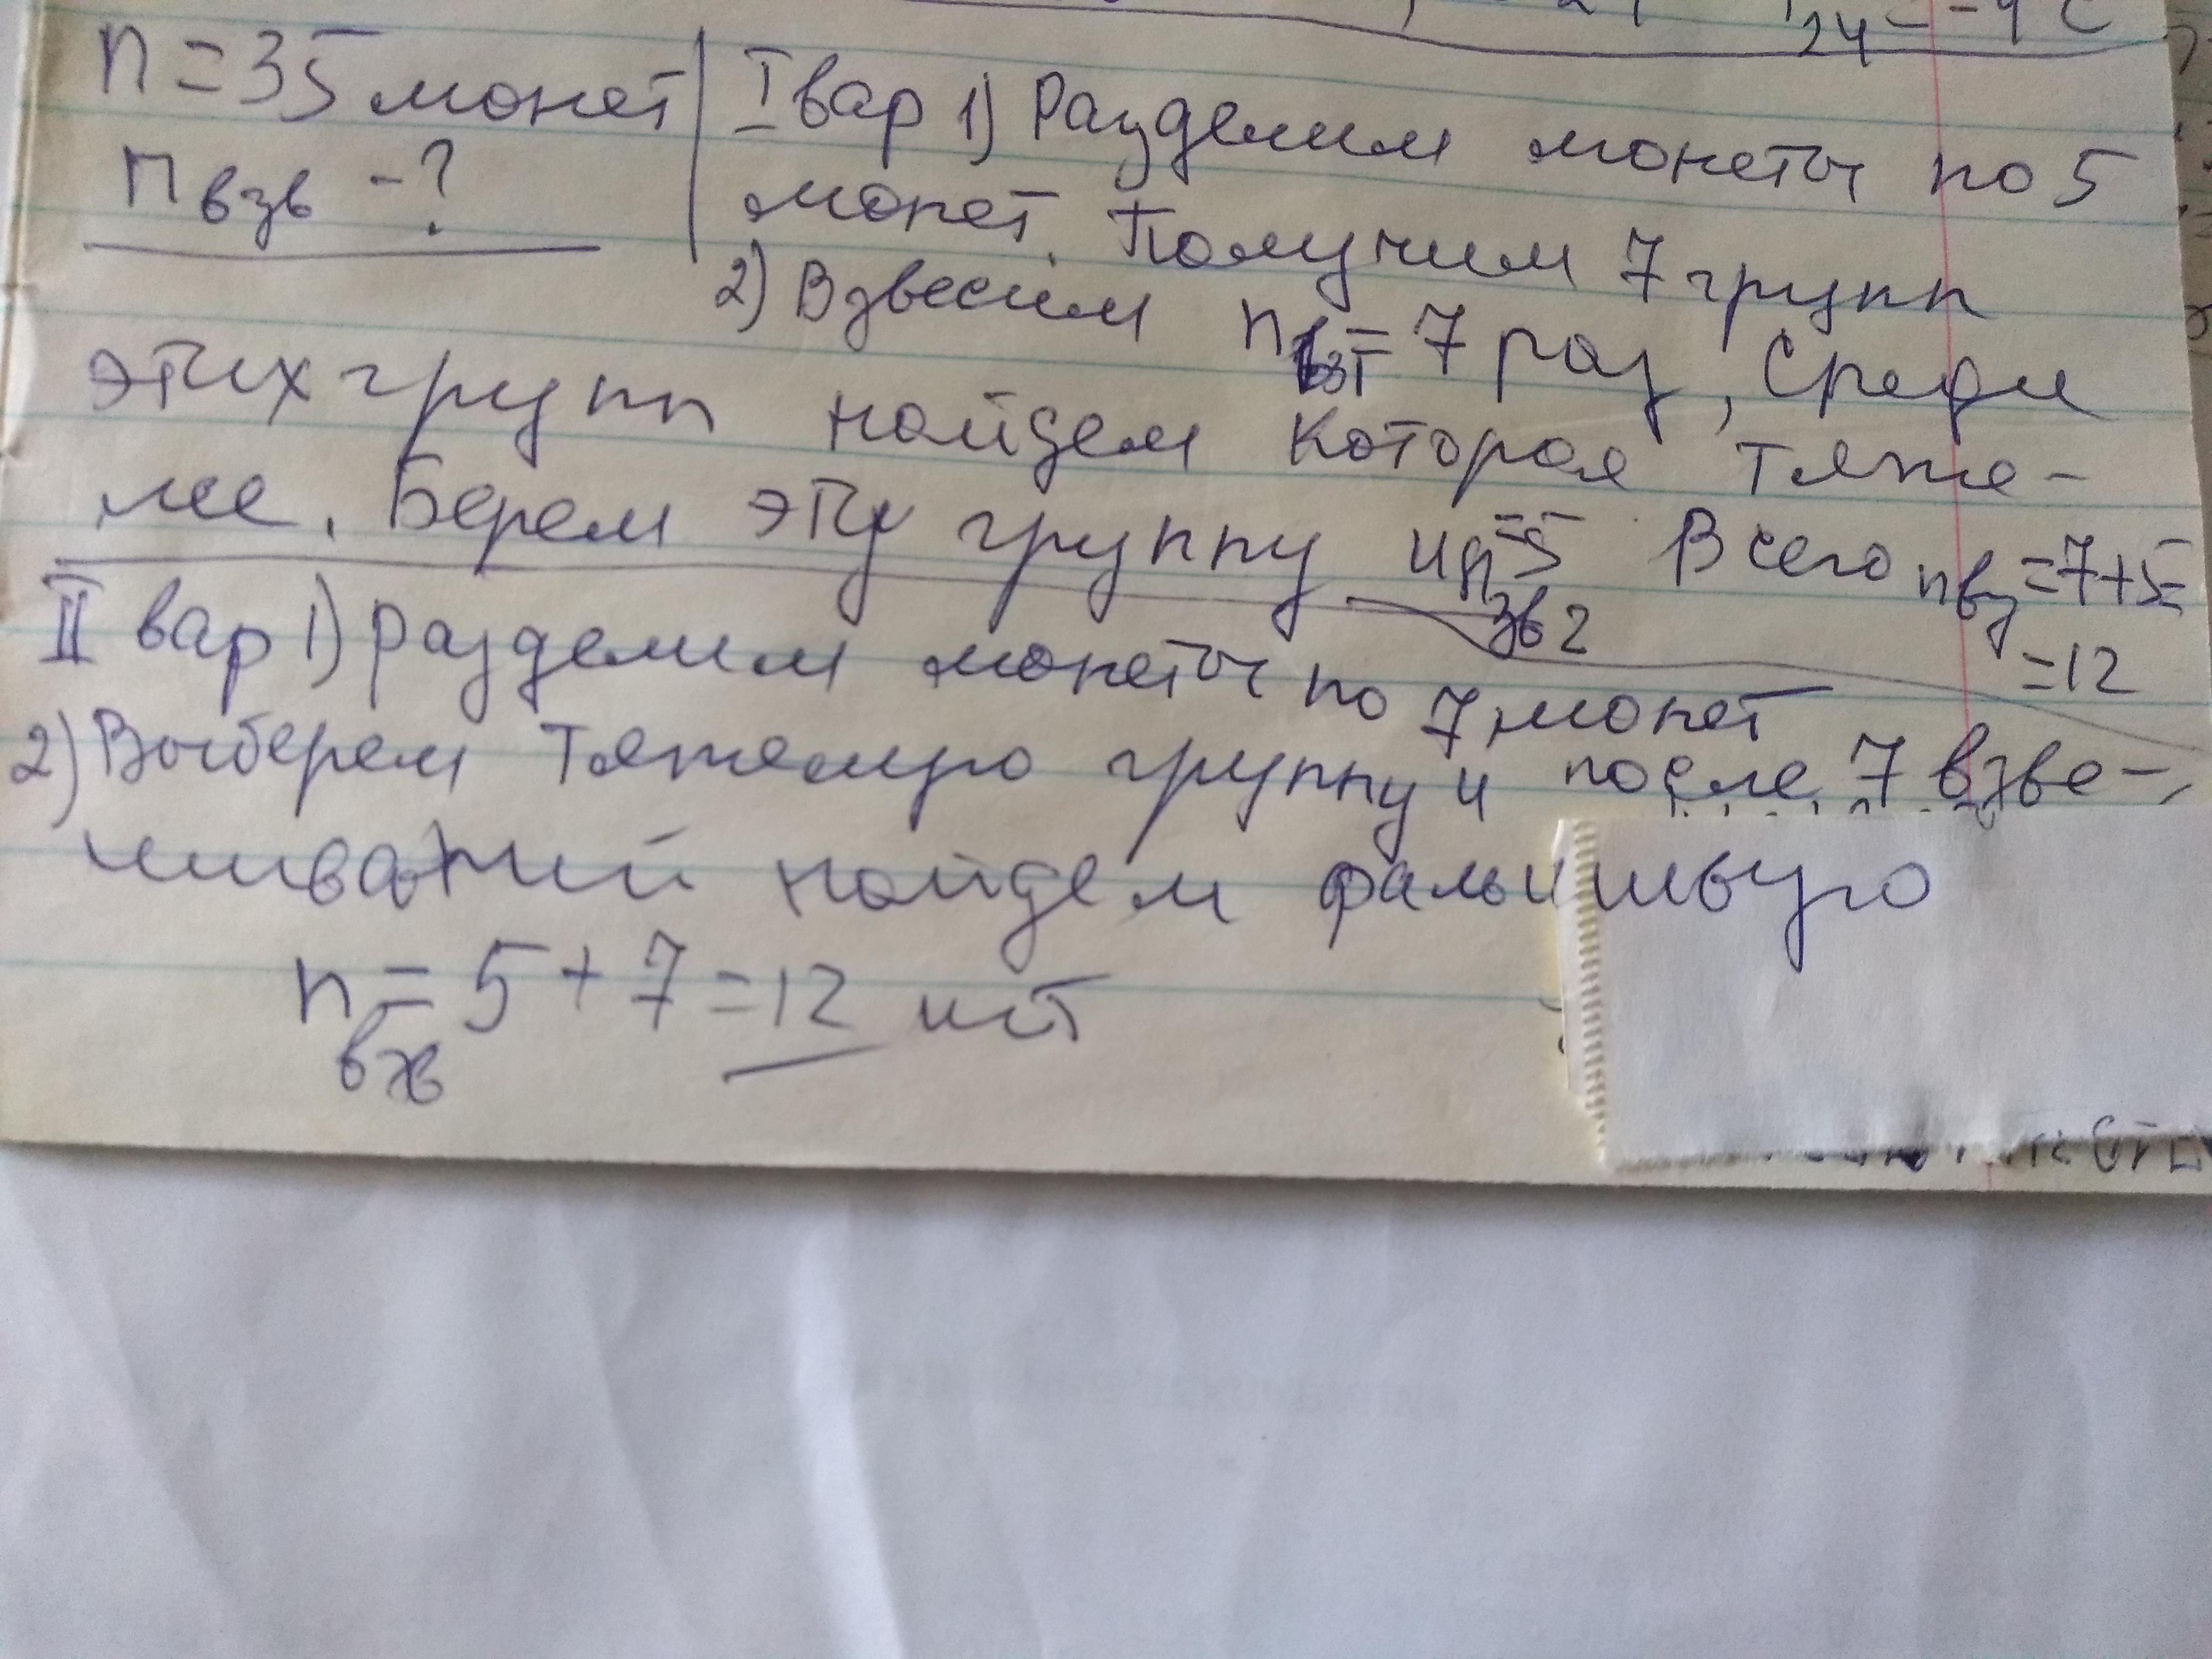 24 = -9 C
n = 35 монет
n взв - ?
I вар 1) Разделим монеты по 5
монет. Получим 7 групп
2) Взвесим n вз1 = 7 раз, Среди
этих групп найдем которая тяже-
лее. Берем эту группу и n зв2 = 5 Всего n вз = 7+5=
=12
II вар 1) разделим монеты по 7 монет
2) Выберем тяжелую группу и после 7 взве-
шиваний найдем фальшивую
n = 5 + 7 = 12 шт